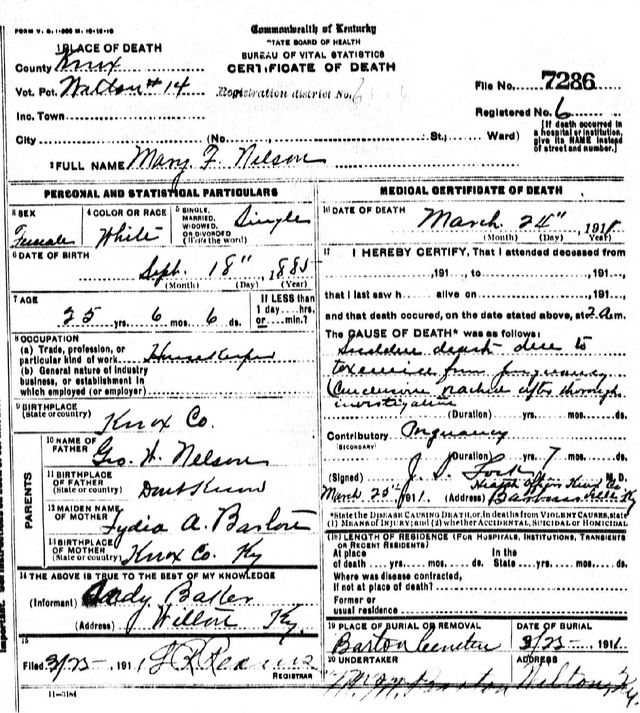 FORM V. S. 1-
Commonwealth of Kentucky
STATE BOARD OF HEALTH
BUREAU OF VITAL STATISTICS
CERTIFICATE OF DEATH
1 PLACE OF DEATH
County Knox
Vot. Pct. Wilton #14
Registration district No.
File No. 7286
Inc. Town
Registered No. 6
City (No. St., Ward)
(If death occurred in a hospital or institution, give its NAME instead of street and number.)
2 FULL NAME Mary F. Nelson
PERSONAL AND STATISTICAL PARTICULARS
3 SEX Female
4 COLOR OR RACE White
5 SINGLE, MARRIED, WIDOWED, OR DIVORCED (Write the word) Single
6 DATE OF BIRTH
Sept. 18" 1885
(Month) (Day) (Year)
7 AGE
25 yrs. 6 mos. 6 ds.
If LESS than 1 day hrs. or min.?
8 OCCUPATION
(a) Trade, profession, or particular kind of work Housekeeper
(b) General nature of industry business, or establishment in which employed (or employer)
9 BIRTHPLACE
(State or country) Knox Co.
PARENTS
10 NAME OF FATHER Geo. W. Nelson
11 BIRTHPLACE OF FATHER (State or country) Dont Know
12 MAIDEN NAME OF MOTHER Lydia A. Barton
13 BIRTHPLACE OF MOTHER (State or country) Knox Co. Ky
14 THE ABOVE IS TRUE TO THE BEST OF MY KNOWLEDGE
(Informant) Andy Baker
(Address) Wilton Ky.
15
Filed 3/25 - 1911
REGISTRAR
11-3184
MEDICAL CERTIFICATE OF DEATH
16 DATE OF DEATH
March 24" 1911
(Month) (Day) Year
17 I HEREBY CERTIFY, That I attended deceased from
,191 , to ,191 ,
that I last saw h alive on ,191 ,
and that death occured, on the date stated above, at 2 a.m.
The CAUSE OF DEATH* was as follows:
Sudden death due to
from pregnancy
after thorough
investigation
(Duration) yrs. mos. ds.
Contributory Pregnancy
(SECONDARY)
(Duration) yrs. 7 mos. ds.
(Signed) J. S. Lock M. D.
Health Officer Knox Co.
March 25" 1911. (Address) Barbourville Ky
*State the DISEASE CAUSING DEATH, or, in deaths from VIOLENT CAUSES, state
(1) MEANS OF INJURY; and (2) whether ACCIDENTAL, SUICIDAL or HOMICIDAL
(18) LENGTH OF RESIDENCE (FOR HOSPITALS, INSTITUTIONS, TRANSIENTS OR RECENT RESIDENTS)
At place of death yrs. mos. ds.
In the State yrs. mos. ds.
Where was disease contracted,
if not at place of death?
Former or
usual residence
19 PLACE OF BURIAL OR REMOVAL
Barton Cemetery
DATE OF BURIAL
3/25 - 1911
20 UNDERTAKER
Barton
ADDRESS
Wilton, Ky.